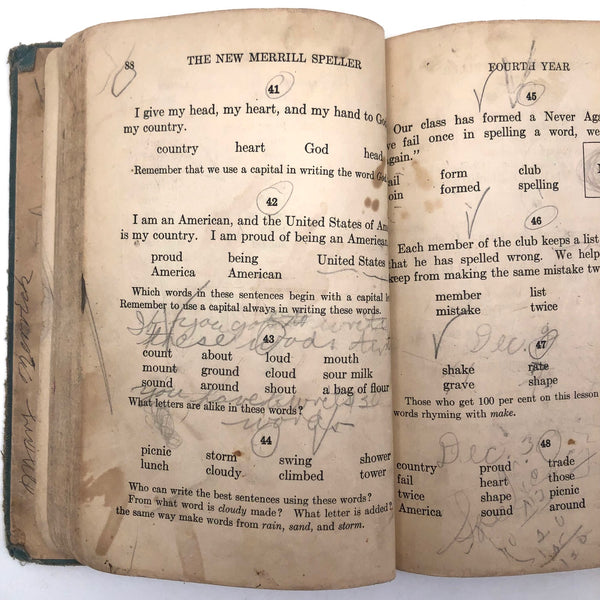 88 THE NEW MERRILL SPELLER
41
I give my head, my heart, and my hand to God,
my country.
country heart God head
Remember that we use a capital in writing the word God.
42
I am an American, and the United States of Am
is my country. I am proud of being an American.
proud being United States
America American
Which words in these sentences begin with a capital le
Remember to use a capital always in writing these words.
43
these words
count about loud mouth
mount ground cloud sour milk
sound around shout a bag of flour
What letters are alike in these words?
you have
words
44
picnic storm swing shower
lunch cloudy climbed tower
Who can write the best sentences using these words?
From what word is cloudy made? What letter is added?
the same way make words from rain, sand, and storm.
FOURTH YEAR
45
Our class has formed a Never Aga
we fail once in spelling a word, we
again."
ail form club
oin formed spelling
46
Each member of the club keeps a list
that he has spelled wrong. We help
keep from making the same mistake tw
member list
mistake twice
Dec. 9
47
shake rate
grave shape
Those who get 100 per cent on this lesson
words rhyming with make.
Dec. 30
48
country proud trade
fail heart those
twice shape picnic
America sound around